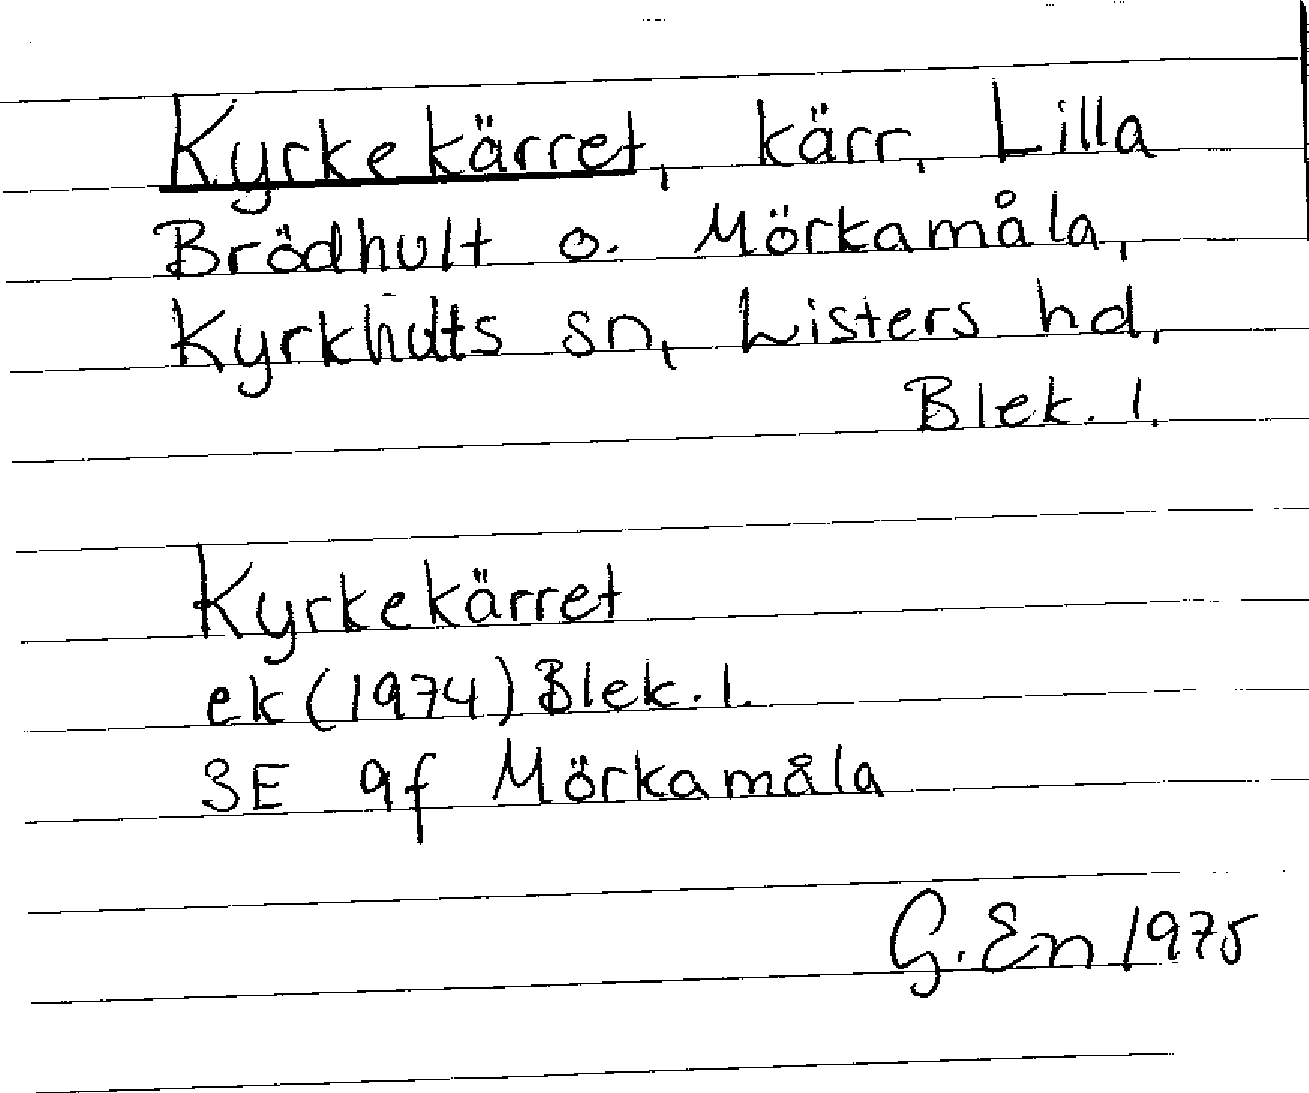 Kyrkekärret, kärr, Lilla
Brödhult o. Mörkamåla,
Kyrkhults sn, Listers hd,
Blek. l.
Kyrkekärret
ek (1974) Blek. l.
SE af Mörkamåla
G. En 1975